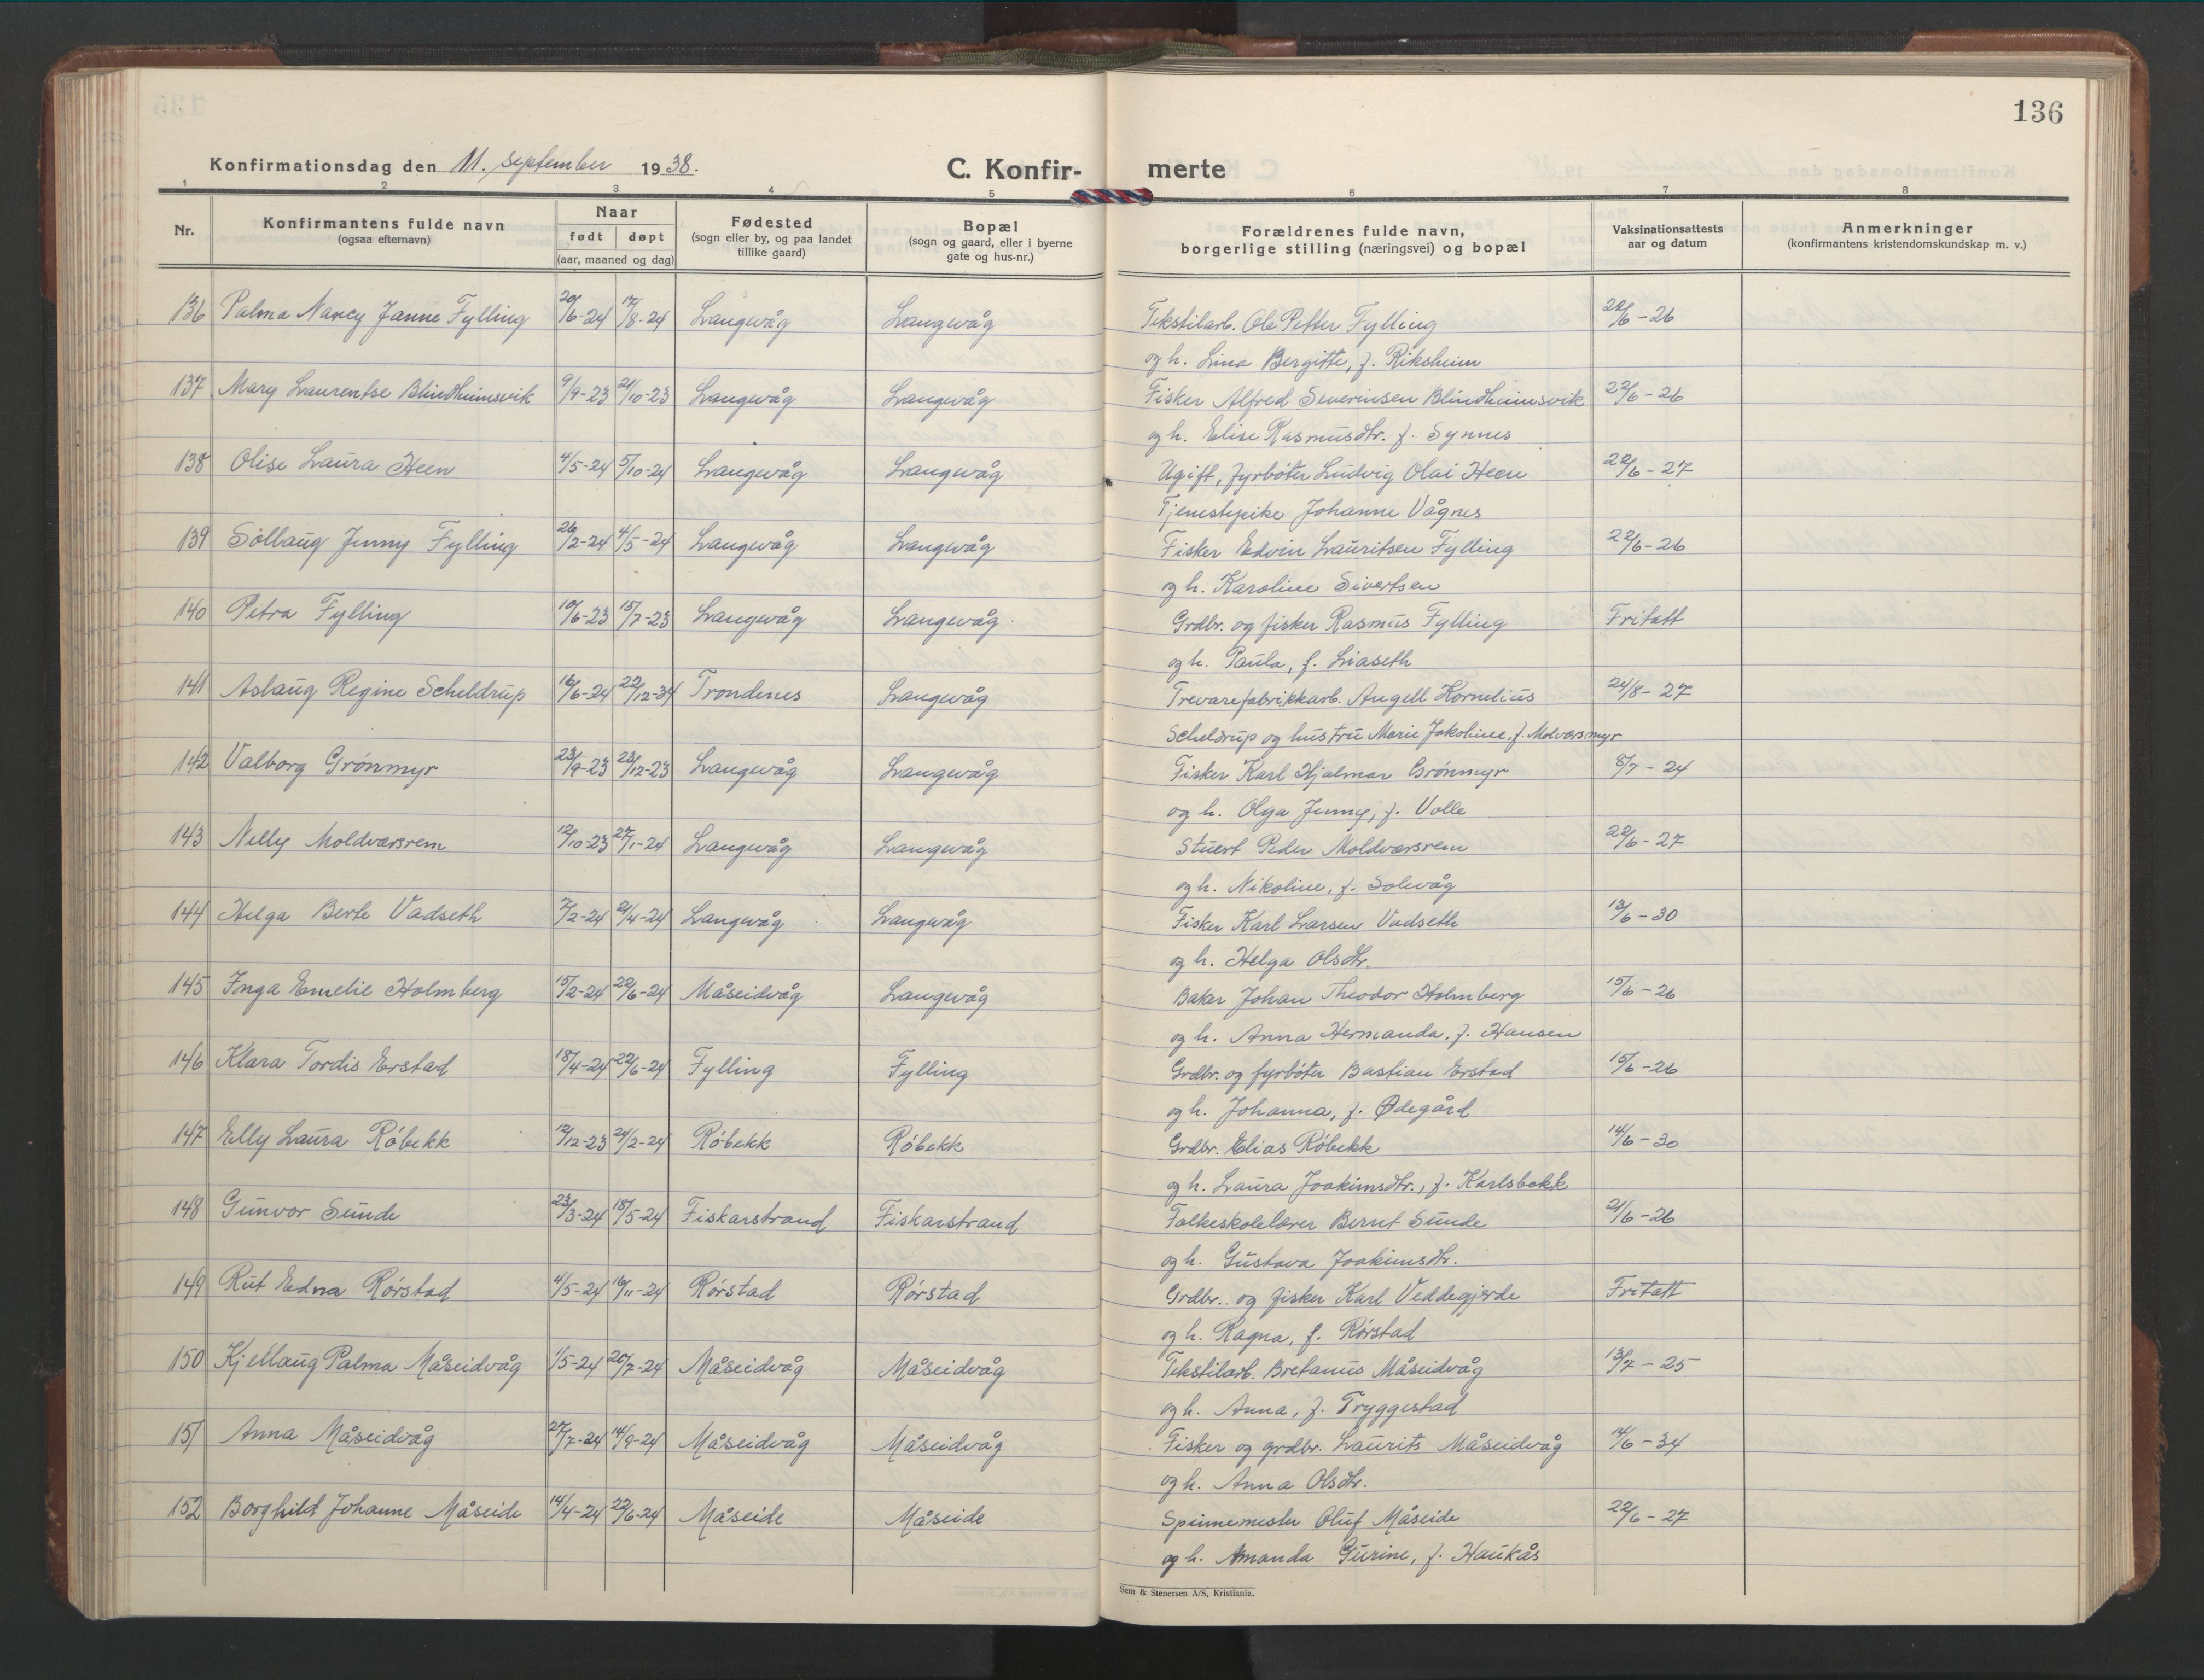 136
Konfirmationsdag den 11. september 1938.
C. Konfir- merte
1 2 3 4 5 6 7 8
Nr.
Konfirmantens fulde navn
(ogsaa efternavn)
Naar
født døpt
(aar, maaned og dag)
Fødested
(sogn eller by, og paa landet
tillike gaard)
Bopæl
(sogn og gaard, eller i byerne
gate og hus-nr.)
Forældrenes fulde navn,
borgerlige stilling (næringsvei) og bopæl
Vaksinationsattests
aar og datum
Anmerkninger
(konfirmantens kristendomskundskap m. v.)
136 Palma Nancy Janne Fylling 20/6-24 17/8-24 Langevåg Langevåg Tekstilarb. Ole Petter Fylling 22/6-26
og h. Lina Bergitte, f. Riksheim
137 Mary Laurentse Blindheimsvik 9/9-23 21/10-23 Langevåg Langevåg Fisker Alfred Severinsen Blindheimsvik 22/6-26
og h. Elise Rasmusdtr. f. Synnes
138 Olise Laura Heen 4/5-24 5/10-24 Langevåg Langevåg Ugift, fyrbøter Ludvig Olai Heen 22/6-27
Tjenestepike Johanne Vågnes
139 Sollaug Jenny Fylling 26/2-24 4/5-24 Langevåg Langevåg Fisker Edvin Lauritsen Fylling 22/6-26
og h. Karoline Sivertsen
140 Petra Fylling 10/6-23 15/7-23 Langevåg Langevåg Grdbr. og fisker Rasmus Fylling Fritatt
og h. Paula, f. Liaseth
141 Aslaug Regine Scheldrup 16/6-24 22/12-34 Trondenes Langevåg Trevarefabrikkarb. Angell Kornelius 24/8-27
Scheldrup og hustru Marie Jakobine, f. Molværsmyr
142 Valborg Grønmyr 23/9-23 23/12-23 Langevåg Langevåg Fisker Karl Hjalmar Grønmyr 8/7-24
og h. Olga Jenny, f. Volle
143 Nelly Moldværsrem 12/10-23 27/1-24 Langevåg Langevåg Stuert Peder Moldværsrem 22/6-27
og h. Nikoline, f. Solevåg
144 Helga Berte Vadseth 7/2-24 21/4-24 Langevåg Langevåg Fisker Karl Larsen Vadseth 13/6-30
og h. Helga Olsdtr.
145 Inga Emelie Holmberg 15/2-24 22/6-24 Måseidvåg Langevåg Baker Johan Theodor Holmberg 15/6-26
og h. Anna Hermanda, f. Hansen
146 Klara Tordis Erstad 18/4-24 22/6-24 Fylling Fylling Grdbr. og fyrbøter Bastian Erstad 15/6-26
og h. Johanna, f. Ødegård
147 Elly Laura Røbekk 12/12-23 24/2-24 Røbekk Røbekk Grdbr. Elias Røbekk 14/6-30
og h. Laura Joakimsdtr., f. Karlsbakk
148 Gunvor Sunde 23/3-24 18/5-24 Fiskarstrand Fiskarstrand Folkeskolelærer Bernt Sunde 21/6-26
og h. Gustava Joakimsdtr.
149 Rut Edna Rørstad 4/5-24 16/11-24 Rørstad Rørstad Grdbr. og fisker Karl Veddegjerde Fritatt
og h. Ragna, f. Rørstad
150 Kjellaug Palma Måseidvåg 1/5-24 20/7-24 Måseidvåg Måseidvåg Tekstilarb. Bretanus Måseidvåg 13/7-25
og h. Anna, f. Tryggestad
151 Anna Måseidvåg 27/7-24 14/9-24 Måseidvåg Måseidvåg Fisker og grdbr. Laurits Måseidvåg 14/6-34
og h. Anna Olsdtr.
152 Borghild Johanne Måseide 14/4-24 22/6-24 Måseide Måseide Spinnemester Oluf Måseide 22/6-27
og h. Amanda Gurine, f. Haukås
Sem & Stenersen A/S, Kristiania.